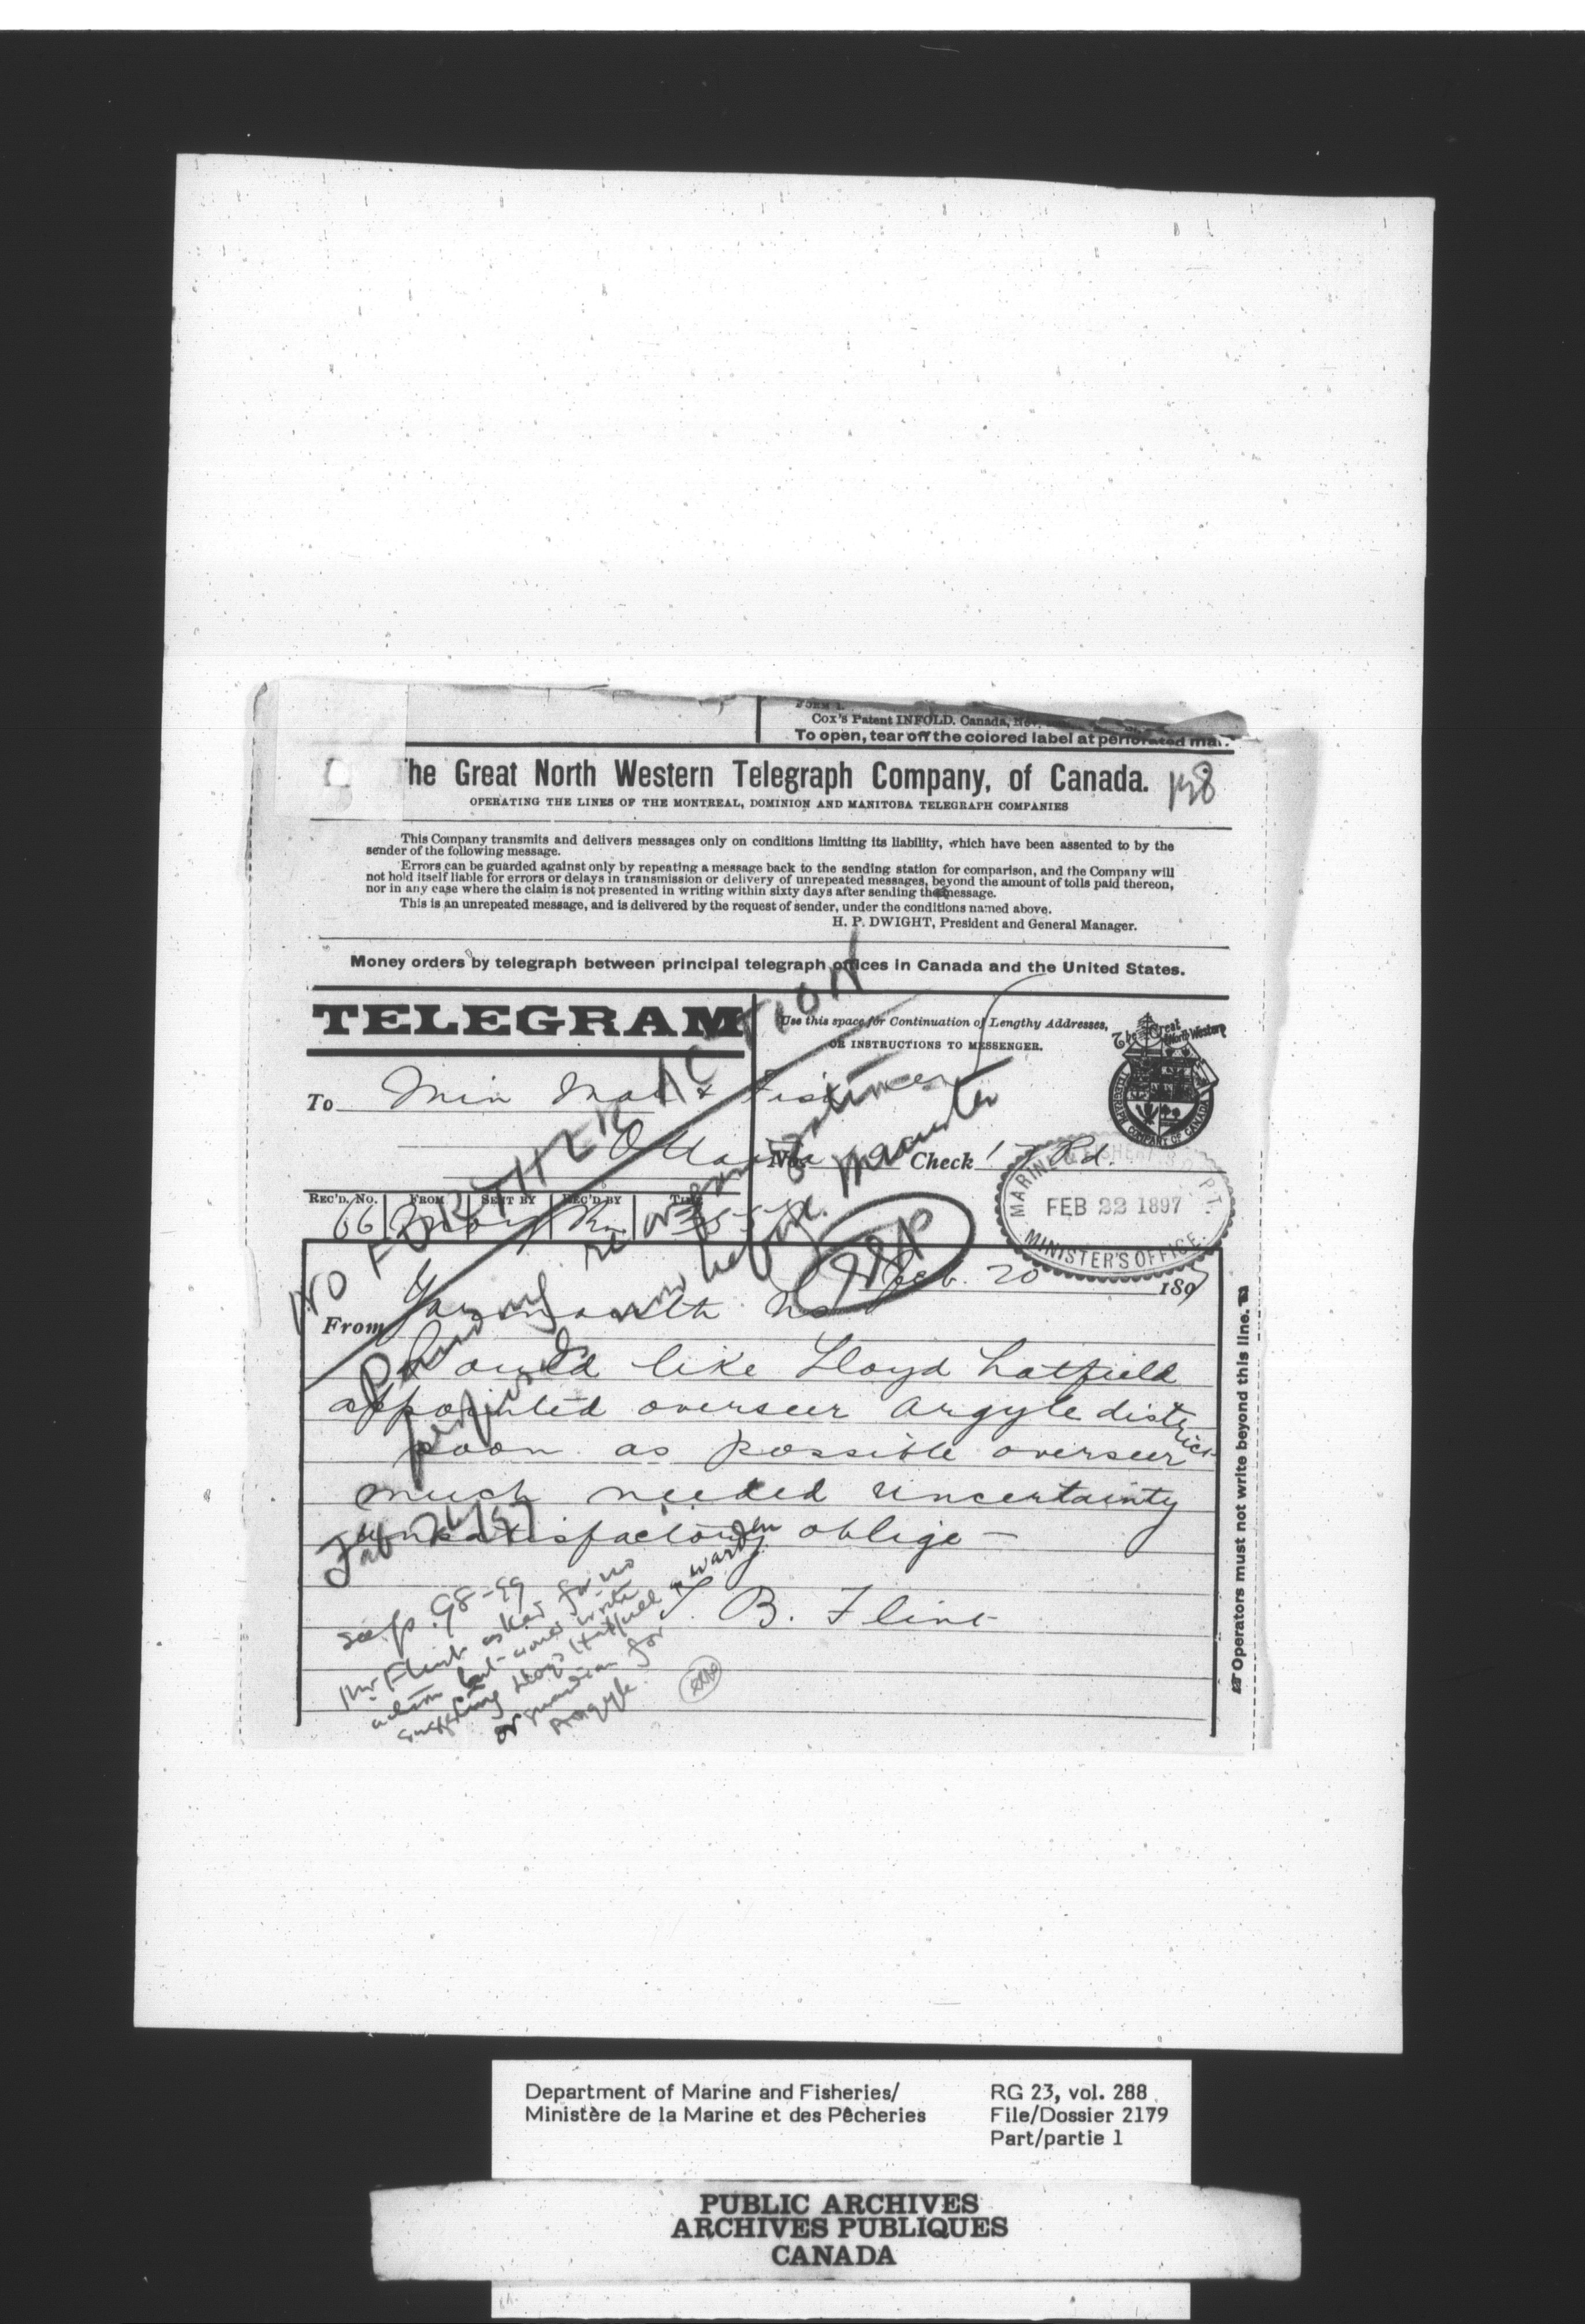 FORM 1.
Cox's Patent INFOLD. Canada, Nov.
To open, tear off the colored label at perforated
he Great North Western Telegraph Company, of Canada.
OPERATING THE LINES OF THE MONTREAL, DOMINION AND MANITOBA TELEGRAPH COMPANIES
This Company transmits and delivers messages only on conditions limiting its liability, which have been assented to by the
sender of the following message.
Errors can be guarded against only by repeating a message back to the sending station for comparison, and the Company will
not hold itself liable for errors or delays in transmission or delivery of unrepeated messages, beyond the amount of tolls paid thereon,
nor in any case where the claim is not presented in writing within sixty days after sending the message.
This is an unrepeated message, and is delivered by the request of sender, under the conditions named above.
H. P. DWIGHT, President and General Manager.
Money orders by telegraph between principal telegraph offices in Canada and the United States.
TELEGRAM
Use this space for Continuation of Lengthy Addresses,
OR INSTRUCTIONS TO MESSENGER.
The Great North Western
TELEGRAPH COMPANY OF CANADA
To Min Mar & Fisheries
Ottawa
No. Check 17 Pd.
REC'D. NO. FROM SENT BY REC'D BY TIME
66
MARINE & FISHERIES DEPT.
FEB 22 1897
MINISTER'S OFFICE
Feb. 20 1897
From Yarmouth Ns
Would like Lloyd Hatfield
appointed overseer Argyle district
soon as possible overseer
much needed uncertainty
unsatisfactory oblige —
T. B. Flint
NO FURTHER ACTION
Pending reorganization
now before Minister
Feb 26/97
see p. 98-99
Mr Flint asked for no
action but wires
suggesting Lloyd Hatfield warden
or guardian for
Argyle
Operators must not write beyond this line.
Department of Marine and Fisheries/
Ministère de la Marine et des Pêcheries
RG 23, vol. 288
File/Dossier 2179
Part/partie 1
PUBLIC ARCHIVES
ARCHIVES PUBLIQUES
CANADA